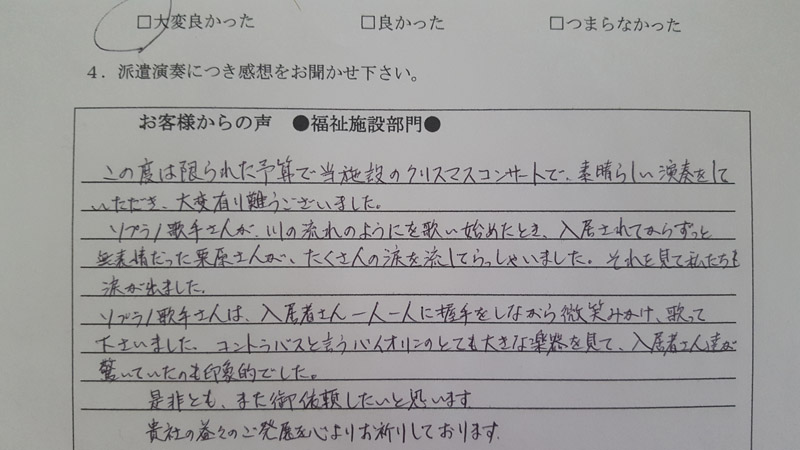 □大変良かった □良かった □つまらなかった
4．派遣演奏につき感想をお聞かせ下さい。
お客様からの声 ●福祉施設部門●
この度は限られた予算で当施設のクリスマスコンサートで、素晴らしい演奏をして
いただき、大変有り難うございました。
ソプラノ歌手さんが、川の流れのようにを歌い始めたとき、入居されてからずっと
無表情だった栗原さんが、たくさんの涙を流してらっしゃいました。それを見て私たちも
涙が出ました。
ソプラノ歌手さんは、入居者さん一人一人に握手をしながら微笑みかけ、歌って
下さいました。コントラバスと言うバイオリンのとても大きな楽器を見て、入居者さん達が
驚いていたのも印象的でした。
是非とも、また御依頼したいと思います
貴社の益々のご発展を心よりお祈りしております